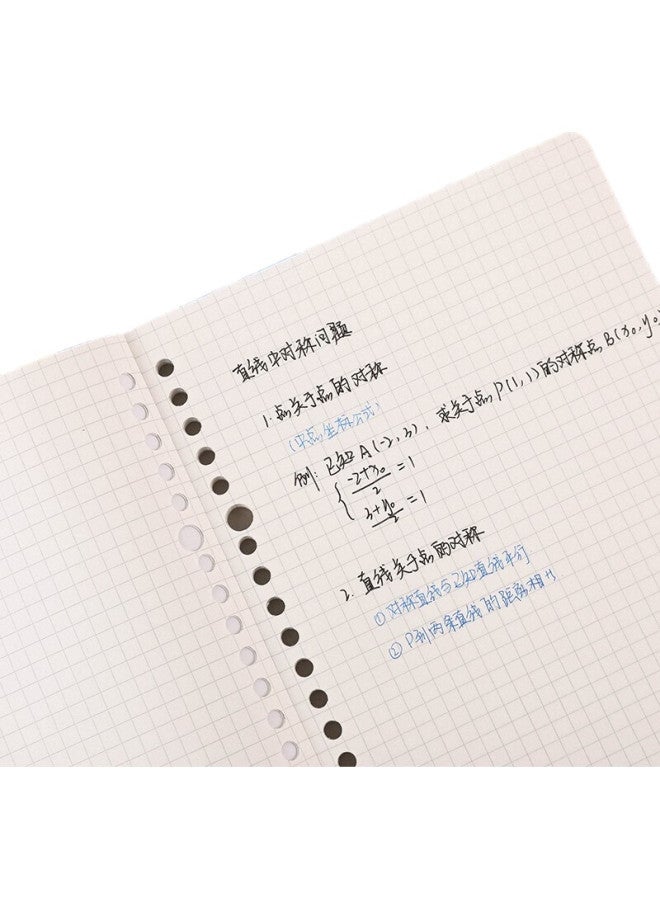 直线中对称问题
1. 点关于点的对称
(中点坐标公式)
例: 已知 A(-2,3), 求关于点 P(1,1) 的对称点 B(x₀,y₀
{ -2+x₀/2 = 1
3+y₀/2 = 1
2. 直线关于点的对称
① 对称直线与已知直线平行
② P到两条直线的距离相